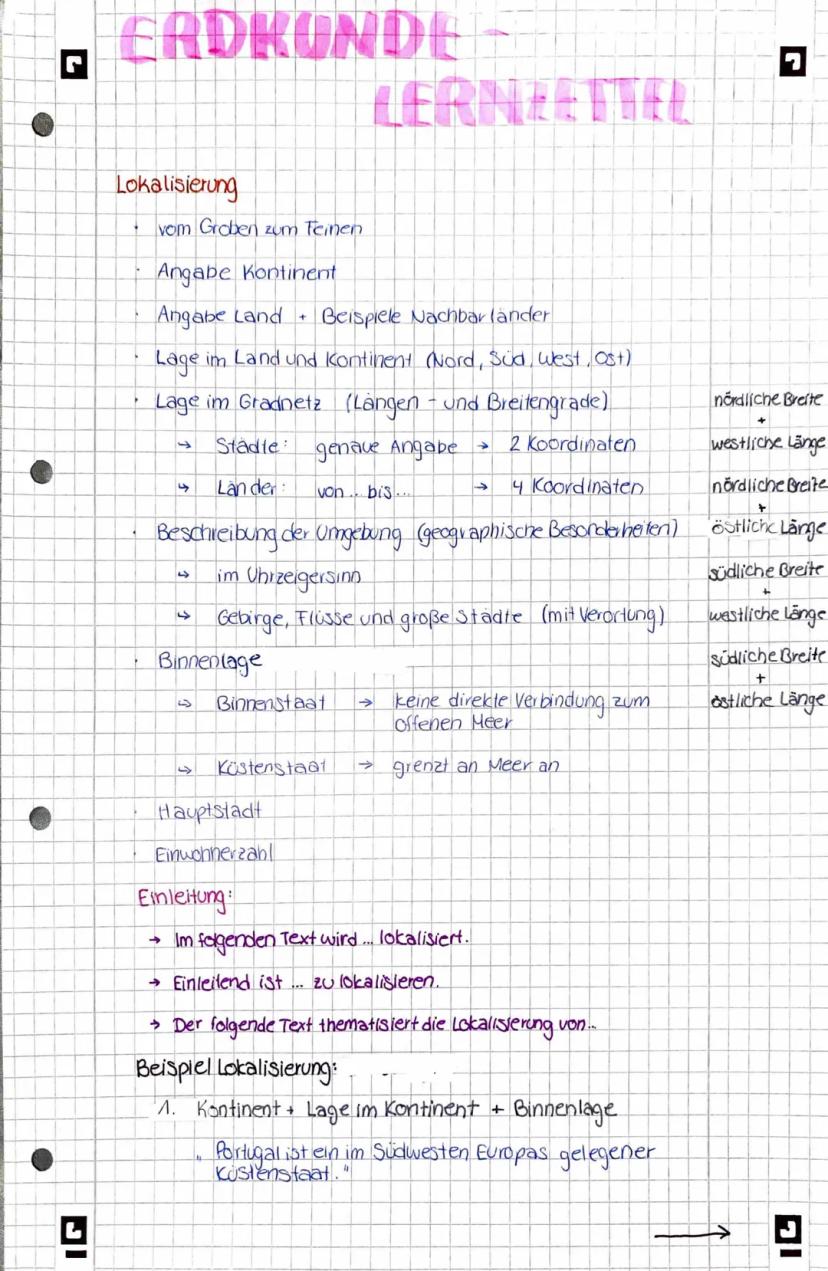 ERDKUNDE -
LERNZETTEL
Lokalisierung
· vom Groben zum Feinen
· Angabe Kontinent
· Angabe Land + Beispiele Nachbarländer
· Lage im Land und Kontinent (Nord, Süd, West, Ost)
· Lage im Gradnetz (Längen - und Breitengrade)
nördliche Breite
+
↳ Städte: genaue Angabe → 2 Koordinaten
westliche Länge
↳ Länder: von .. bis ... → 4 Koordinaten
nördliche Breite
+
· Beschreibung der Umgebung (geographische Besonderheiten)
östliche Länge
↳ im Uhrzeigersinn
südliche Breite
+
↳ Gebirge, Flüsse und große Städte (mit Verortung)
westliche Länge
· Binnenlage
südliche Breite
+
↳ Binnenstaat → keine direkte Verbindung zum
östliche Länge
offenen Meer
↳ Küstenstaat → grenzt an Meer an
· Hauptstadt
· Einwohnerzahl
Einleitung:
→ Im folgenden Text wird ... lokalisiert.
→ Einleitend ist ... zu lokalisieren.
→ Der folgende Text thematisiert die Lokalisierung von...
Beispiel Lokalisierung:
1. Kontinent + Lage im Kontinent + Binnenlage
„Portugal ist ein im Südwesten Europas gelegener
Küstenstaat."
→